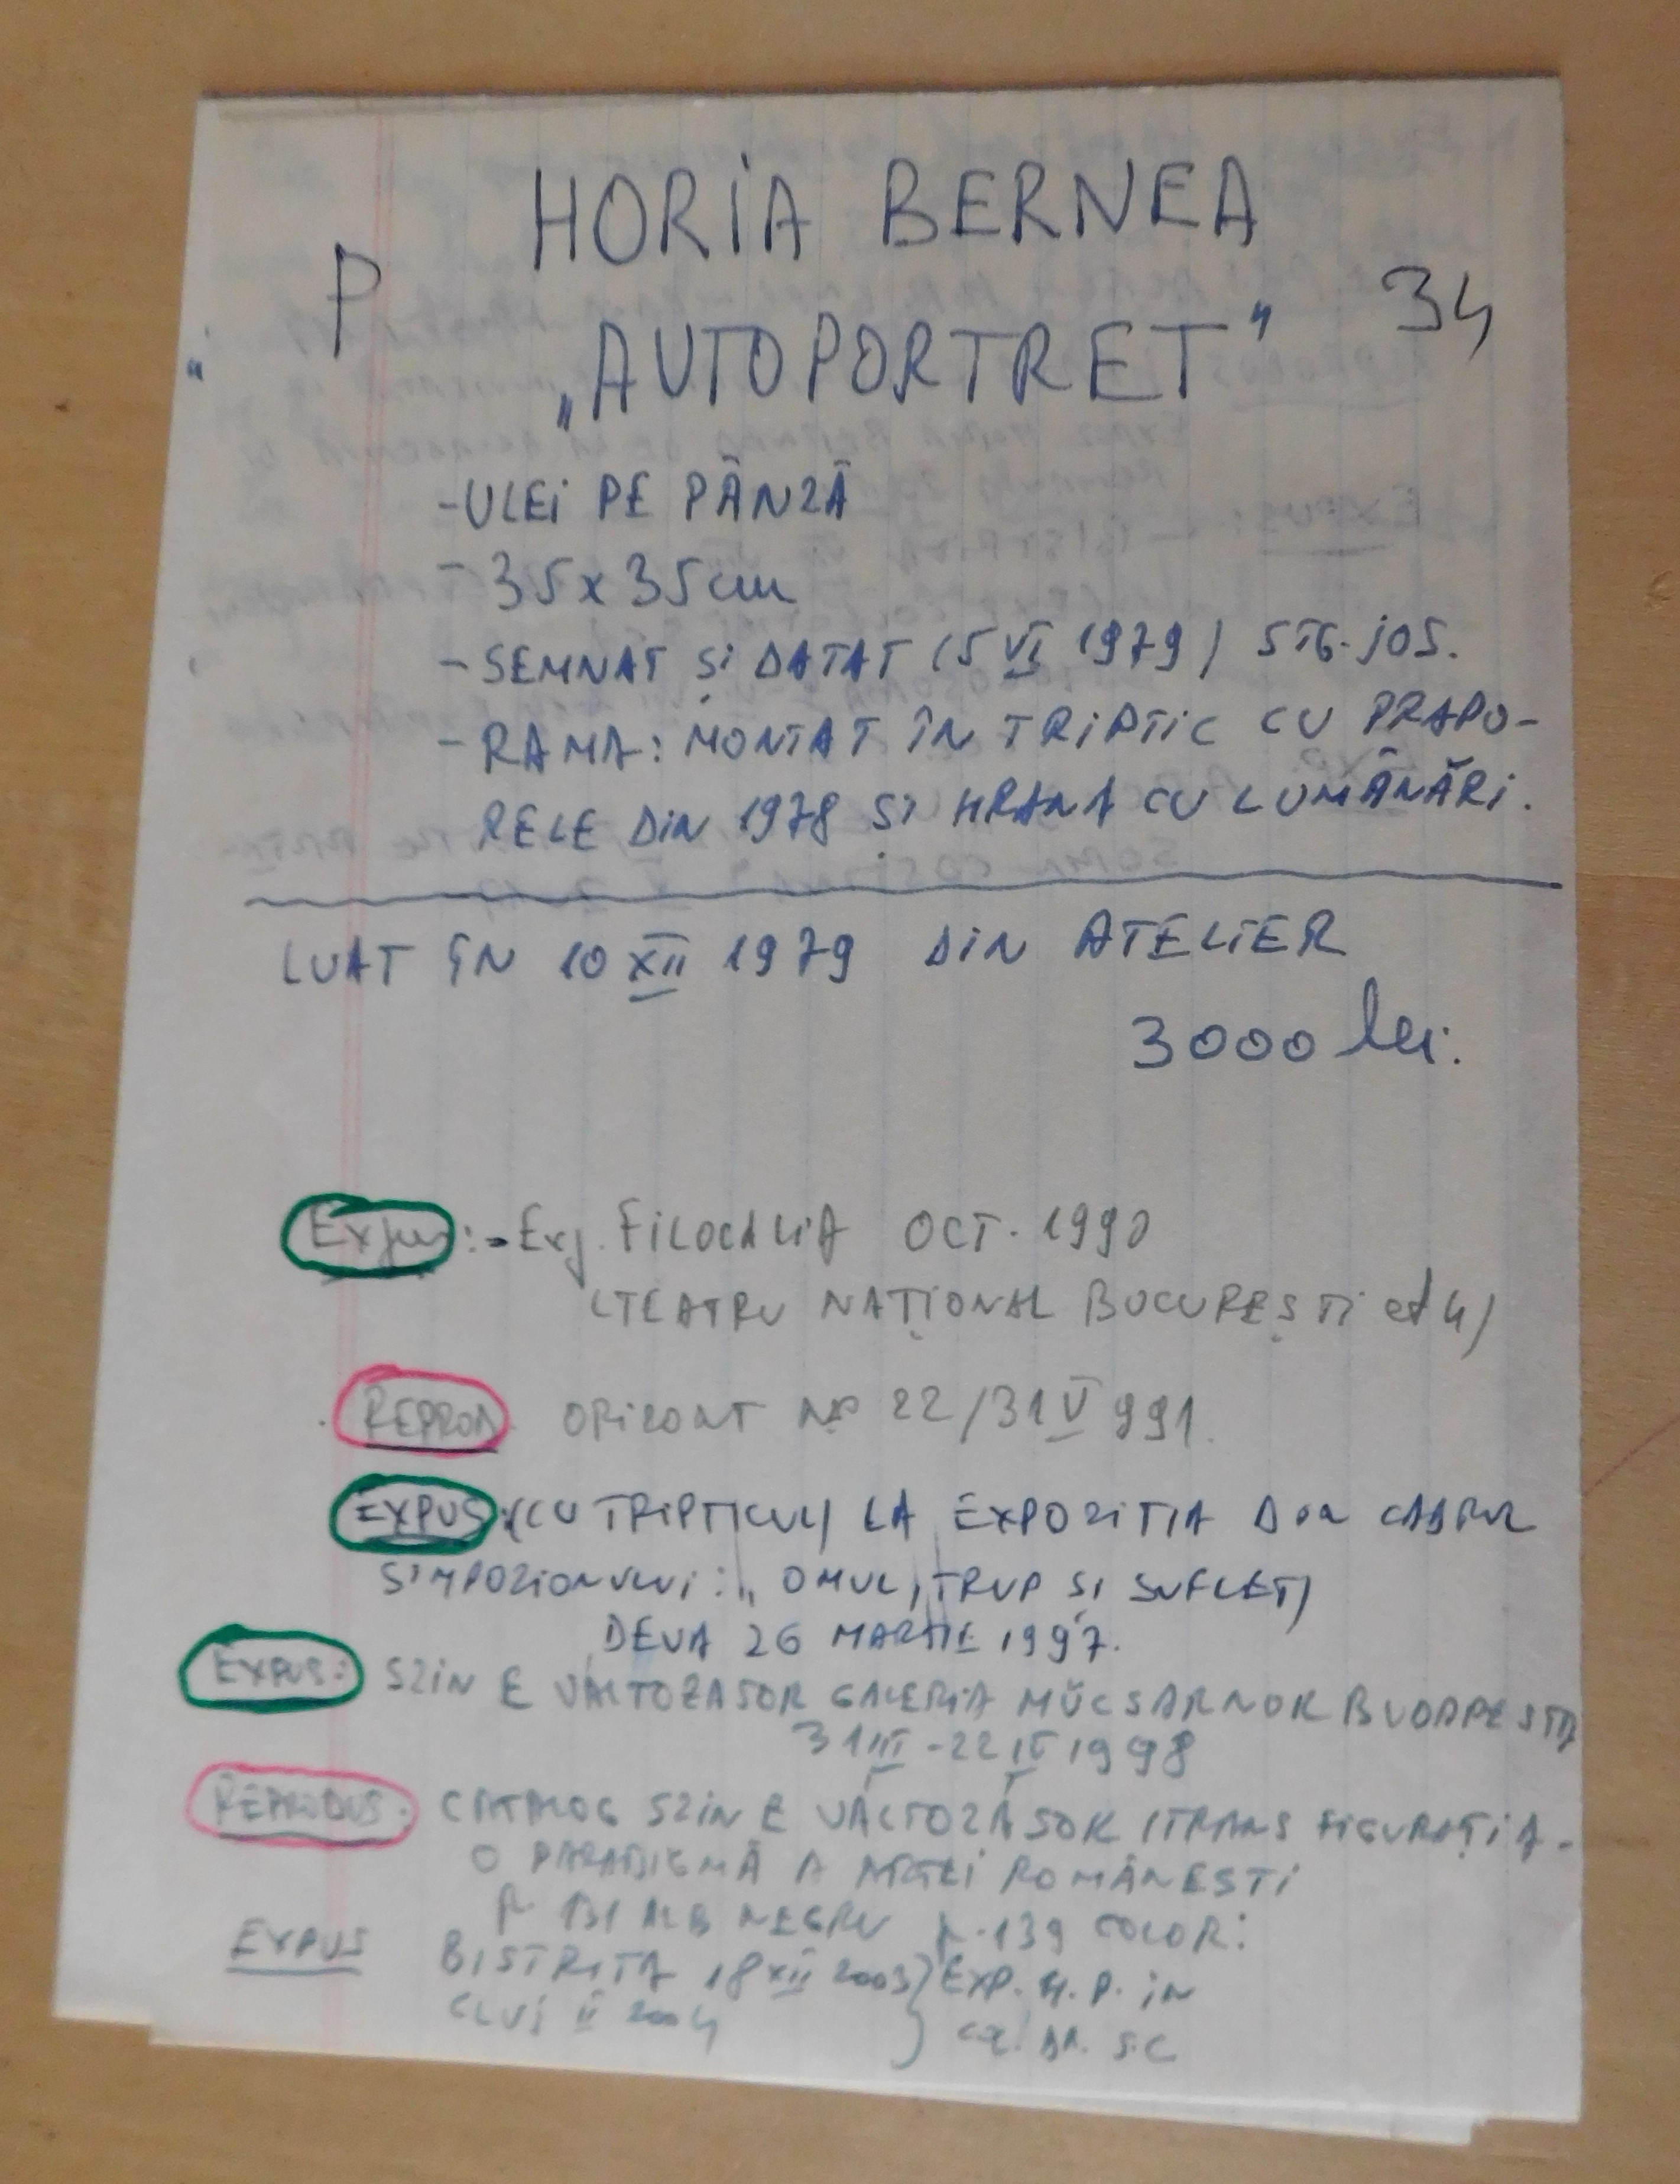 HORIA BERNEA
P „AUTOPORTRET" 34
- ULEI PE PÂNZĂ
- 35x35cm
- SEMNAT ȘI DATAT (5 VI 1979) STG. JOS.
- RAMA: MONTAT ÎN TRIPTIC CU PRAPO-
RELE DIN 1978 ȘI HRANA CU LUMÂNĂRI.
LUAT ÎN 10 XII 1979 DIN ATELIER
3000 lei.
Expus: - Exp. FILOCALIA OCT. 1990
(TEATRU NAȚIONAL BUCUREȘTI et 4)
REPROD. ORIZONT No 22/31 V 991.
EXPUS: (CU TRIPTICUL) LA EXPOZITIA DIN CADRUL
SIMPOZIONULUI: „OMUL, TRUP SI SUFLET)
DEVA 26 MARTIE 1997.
EXPUS: SZIN E VÁLTOZASOR GALERIA MŰCSARNOK BUDAPESTA
31 III - 22 IV 1998
REPRODUS: CATALOG SZIN E VÁLTOZÁSOK (TRANSFIGURAȚIA -
O PARADIGMĂ A ARTEI ROMÂNESTI
p 131 ALB NEGRU p. 139 COLOR:
EXPUS BISTRITA 18 XII 2003 } EXP. H. P. IN
CLUJ II 2004 } S.C